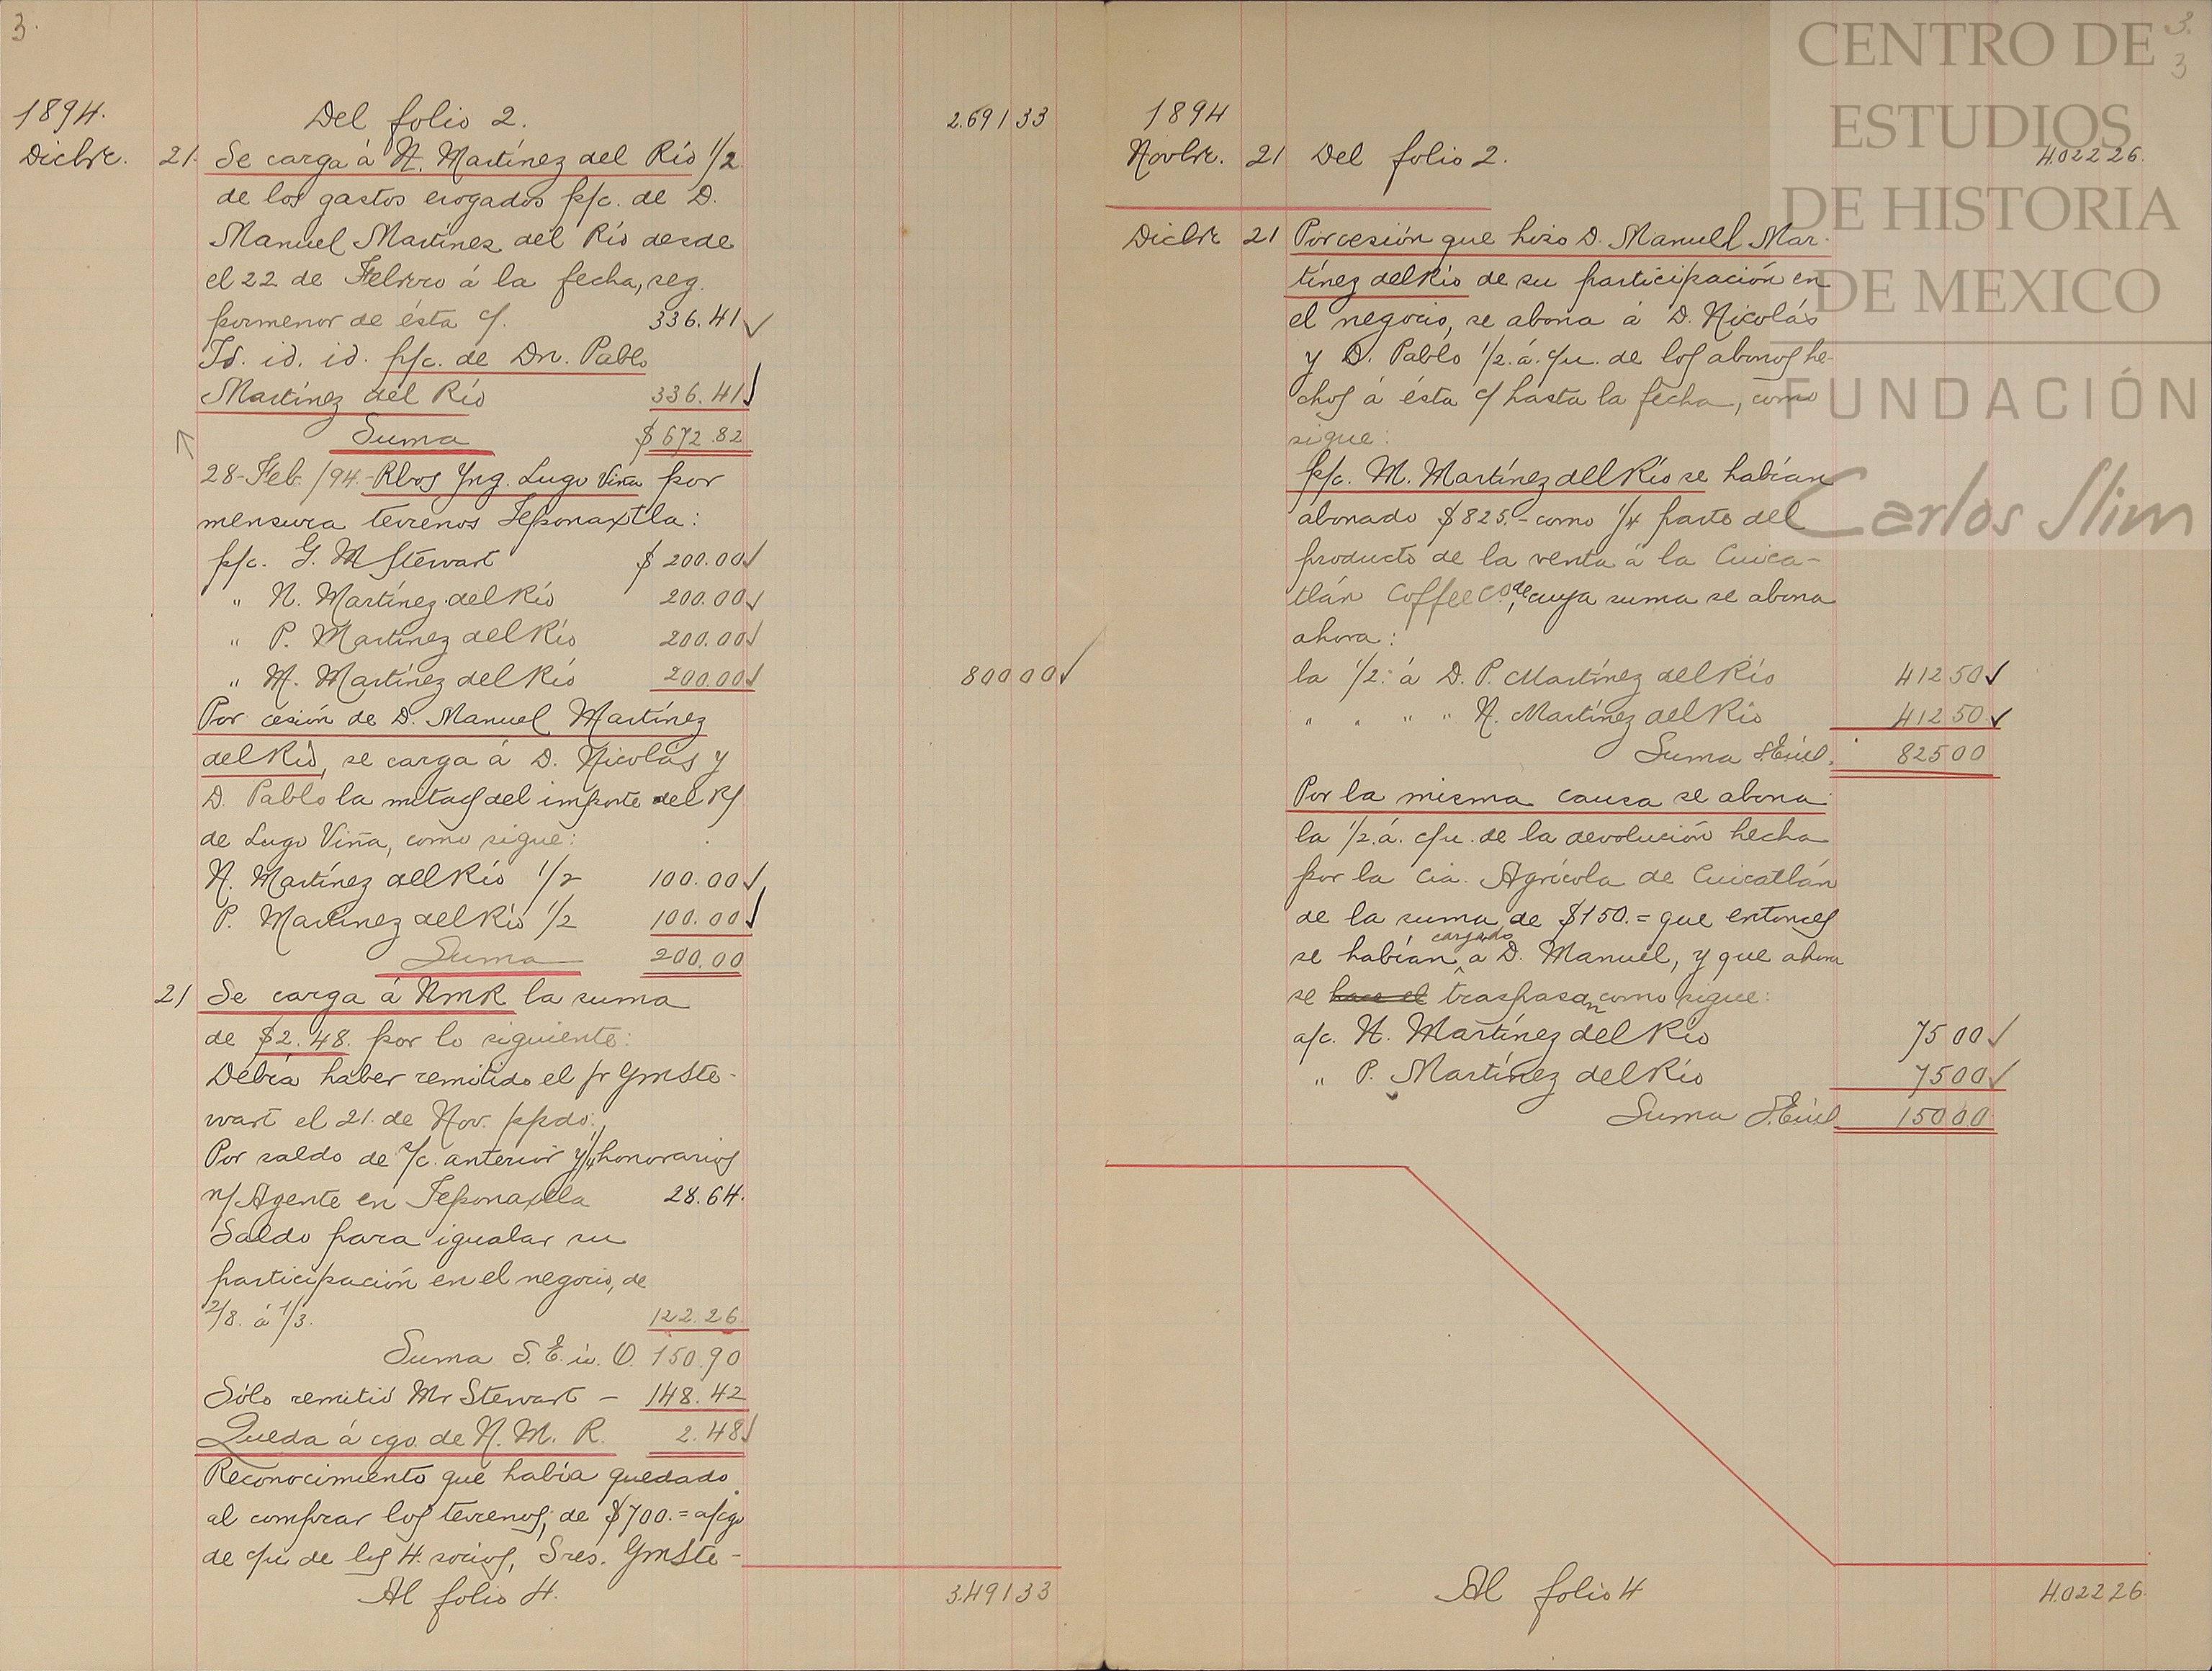 3.
1894.
Del folio 2.
2.691 33
Dicbre. 21. Se carga á N. Martínez del Río 1/2
de los gastos erogados p/c. de D.
Manuel Martínez del Río desde
el 22 de Febrero á la fecha, seg.
pormenor de ésta c/. 336.41
Id. id. id. p/c. de Dn. Pablo
Martínez del Río 336.41
Suma $672.82
28-Feb./94.-Rbos Yng. Lugo Viña por
mensura terrenos Teponaxtla:
p/c. G. M Stewart $200.00
" N. Martínez del Río 200.00
" P. Martínez del Río 200.00
" M. Martínez del Río 200.00 800 00
Por cesión de D. Manuel Martínez
del Río, se carga á D. Nicolás y
D. Pablo la mitad del importe del R/
de Lugo Viña, como sigue:
N. Martínez del Río 1/2 100.00
P. Martínez del Río 1/2 100.00
Suma 200.00
21 Se carga á NMR la suma
de $2.48. por lo siguiente:
Debía haber remitido el sr GmSte-
wart el 21. de Nov. ppdo:
Por saldo de s/c. anterior y 1/4 honorarios
n/ Agente en Teponaxtla 28.64.
Saldo para igualar su
participación en el negocio, de
2/8. á 1/3. 122.26.
Suma S. E. ú. O. 150.90
Sólo remitió Mr Stewart - 148.42
Queda á cgo. de N. M. R. 2.48
Reconocimiento que había quedado
al comprar los terrenos, de $700.= a/cgo
de c/u de los 4. socios, Sres. GmSte-
Al folio 4. 3.491 33
3.
3
1894
Novbre. 21 Del folio 2. 4.022 26.
Dicbre 21 Por cesión que hizo D. Manuel Mar-
tínez del Río de su participación en
el negocio, se abona á D. Nicolás
y D. Pablo 1/2. á. c/u. de los abonos he-
chos á ésta c/ hasta la fecha, como
sigue:
p/c. M. Martínez del Río se habían
abonado $825.- como 1/4 parte del
producto de la venta á la Cuica-
tlán Coffee Co, de cuya suma se abona
ahora:
la 1/2. á D. P. Martínez del Río 412 50
" " " " N. Martínez del Río 412 50
Suma S.Eúd. 825 00
Por la misma causa se abona
la 1/2. á. c/u. de la devolución hecha
por la Cia. Agrícola de Cuicatlán
de la suma de $150.= que entonces
se habían cargado a D. Manuel, y que ahora
se hace el traspasan como sigue:
a/c. N. Martínez del Río 75 00
" P. Martínez del Río 75 00
Suma S.Eúd 150 00
Al folio 4 4.022 26.
CENTRO DE
ESTUDIOS
DE HISTORIA
DE MEXICO
FUNDACIÓN
Carlos Slim